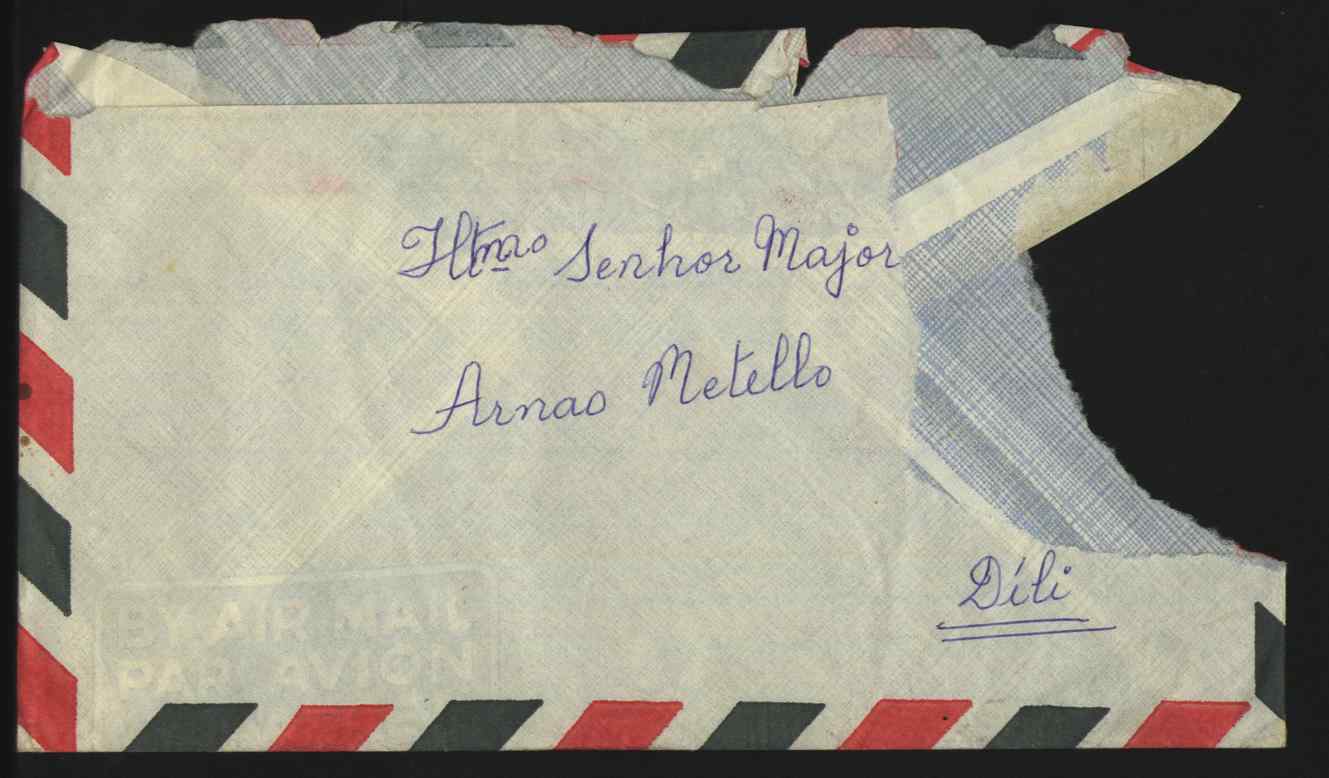 Iltmo Senhor Major
Arnao Metello
Díli
BY AIR MAIL
PAR AVION